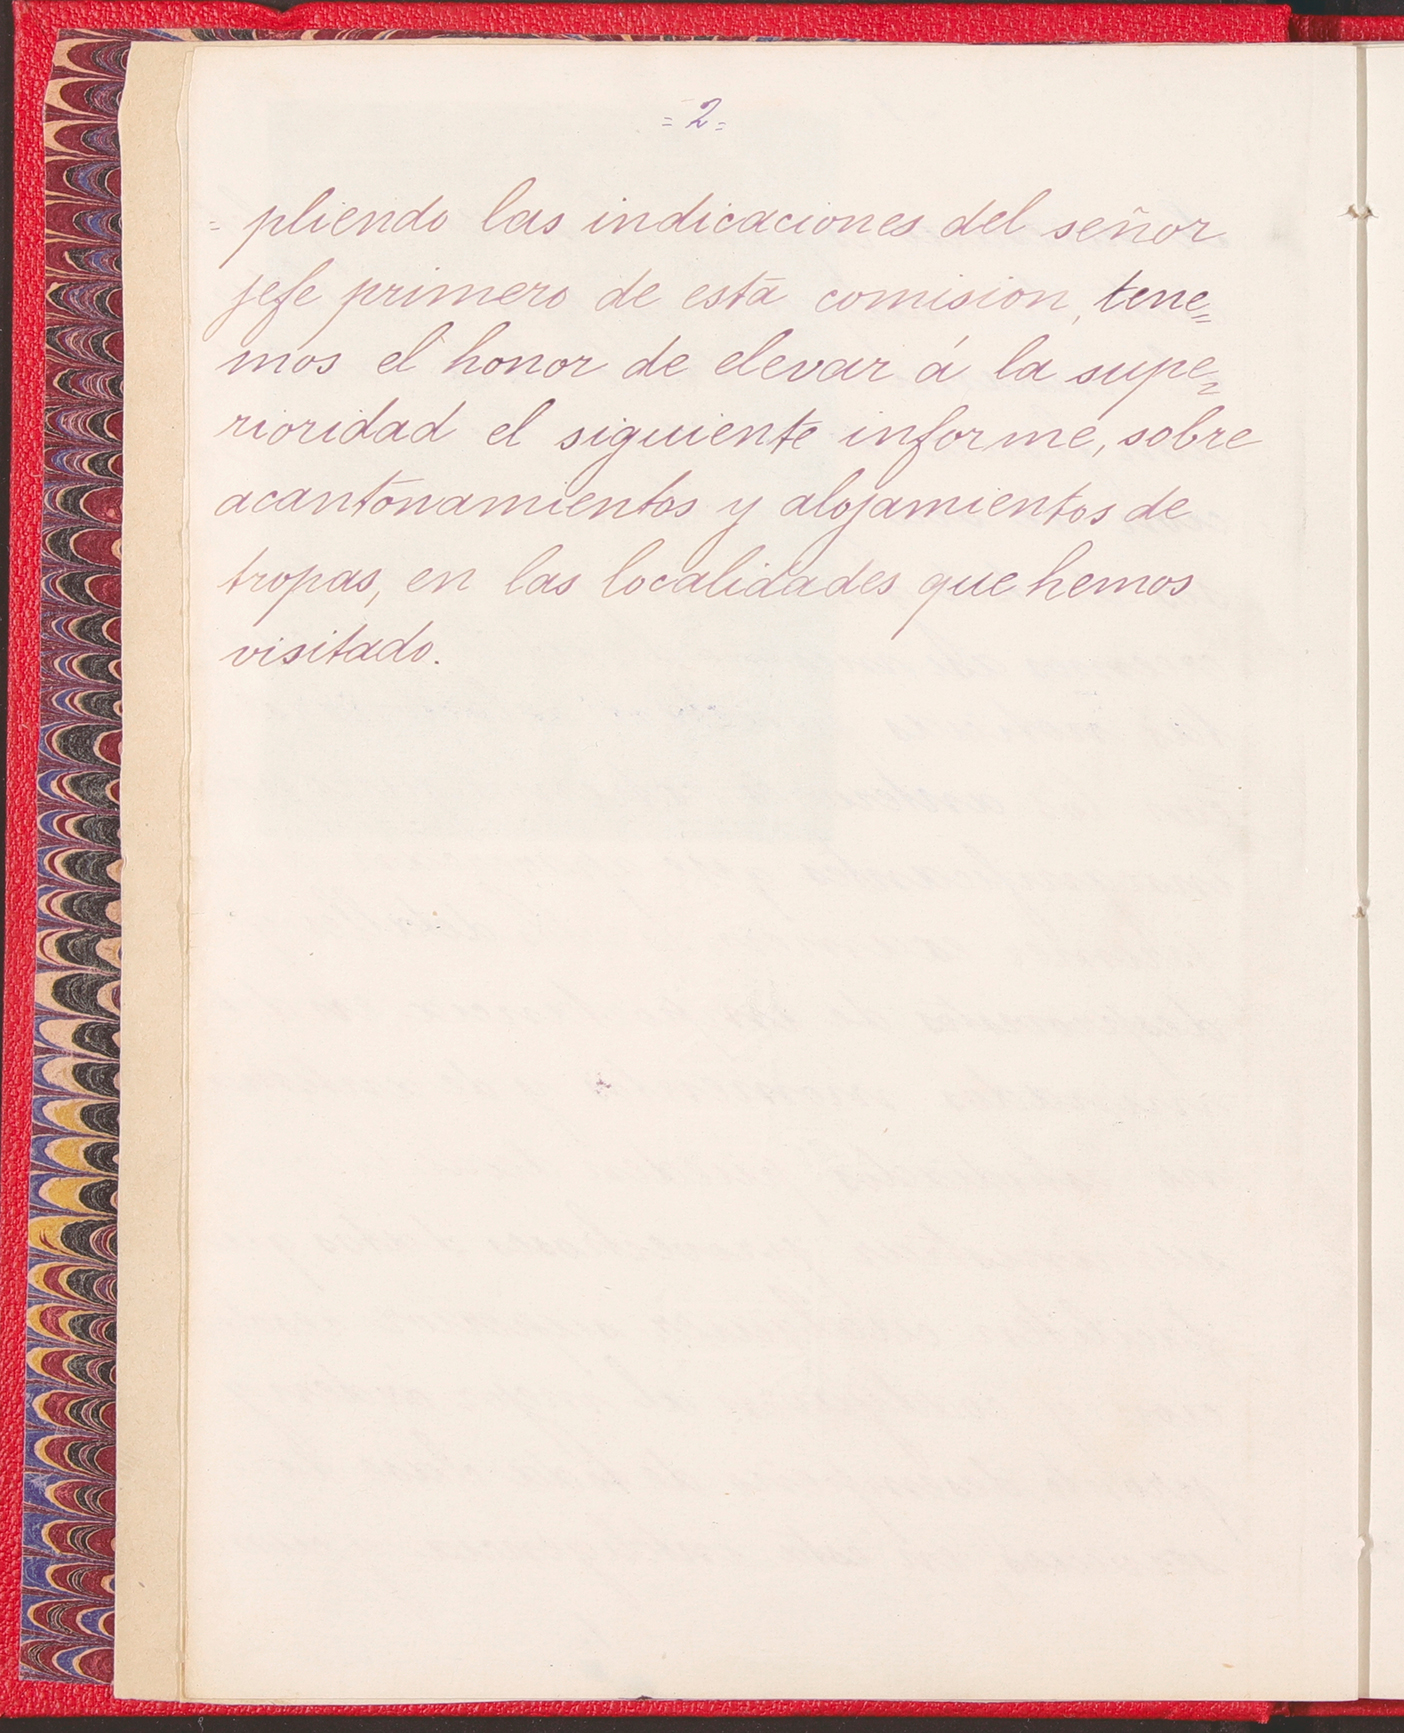 = 2 =
= pliendo las indicaciones del señor
jefe primero de esta comision, tene=
mos el honor de elevar á la supe=
rioridad el siguiente informe, sobre
acantonamientos y alojamientos de
tropas, en las localidades que hemos
visitado.